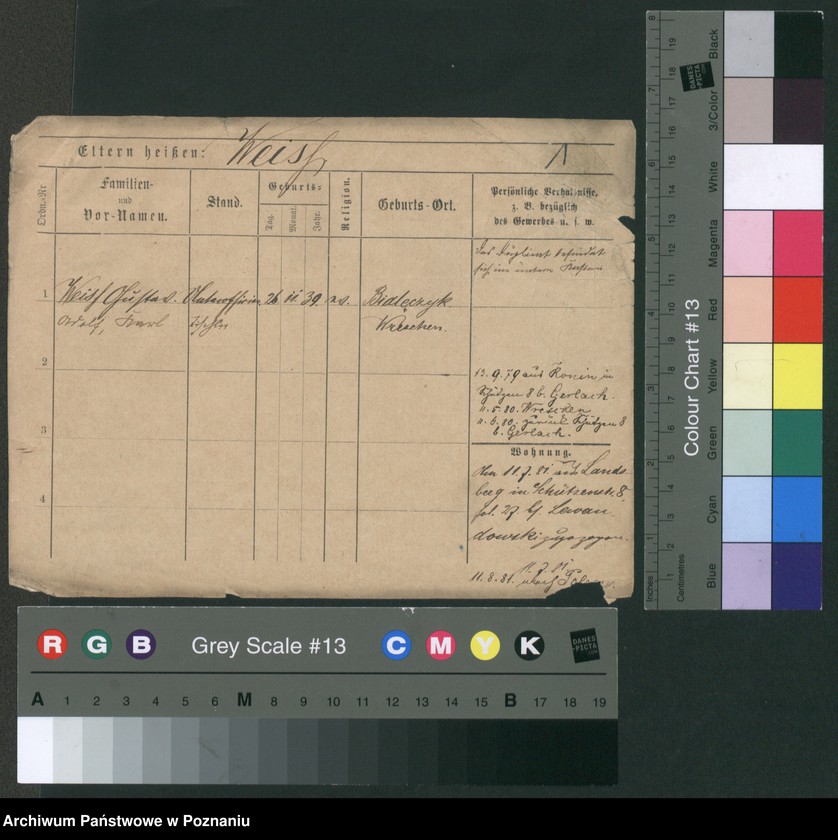 Eltern heißen: Weiss
Ordn.-Nr
Familien-
und
Vor-Namen.
Stand.
Geburts-
Tag.
Monat.
Jahr.
Religion.
Geburts-Ort.
Persönliche Verhältnisse,
z. B. bezüglich
des Gewerbes u. s. w.
Das Duplicat befindet
sich im
1 Weiss Gustav Unteroffizier 26 11 39 ev. Bialeczyk
Adolf, Karl Wreschen.
2
3
4
13.9.79 aus Konin in
Schützen 8 b. Gerlach.
11.5.80. Wreschen
11.6.80. zurück Schützen 8
b. Gerlach.
Wohnung.
Den 11.7.81 aus Lands
berg in Schützenstr. 8
bei Lewan
dowski zugezogen.
11.8.81. nach
8
19
18
7
17
16
6
15
14
5
13
12
11
4
10
9
3
8
7
6
2
5
4
1
3
2
1
Inches
Centimetres
Colour Chart #13
Black
3/Color
White
Magenta
Red
Yellow
Green
Cyan
Blue
DANES
-PICTA
.COM
R G B Grey Scale #13 C M Y K DANES
-PICTA
.COM
A 1 2 3 4 5 6 M 8 9 10 11 12 13 14 15 B 17 18 19
Archiwum Państwowe w Poznaniu